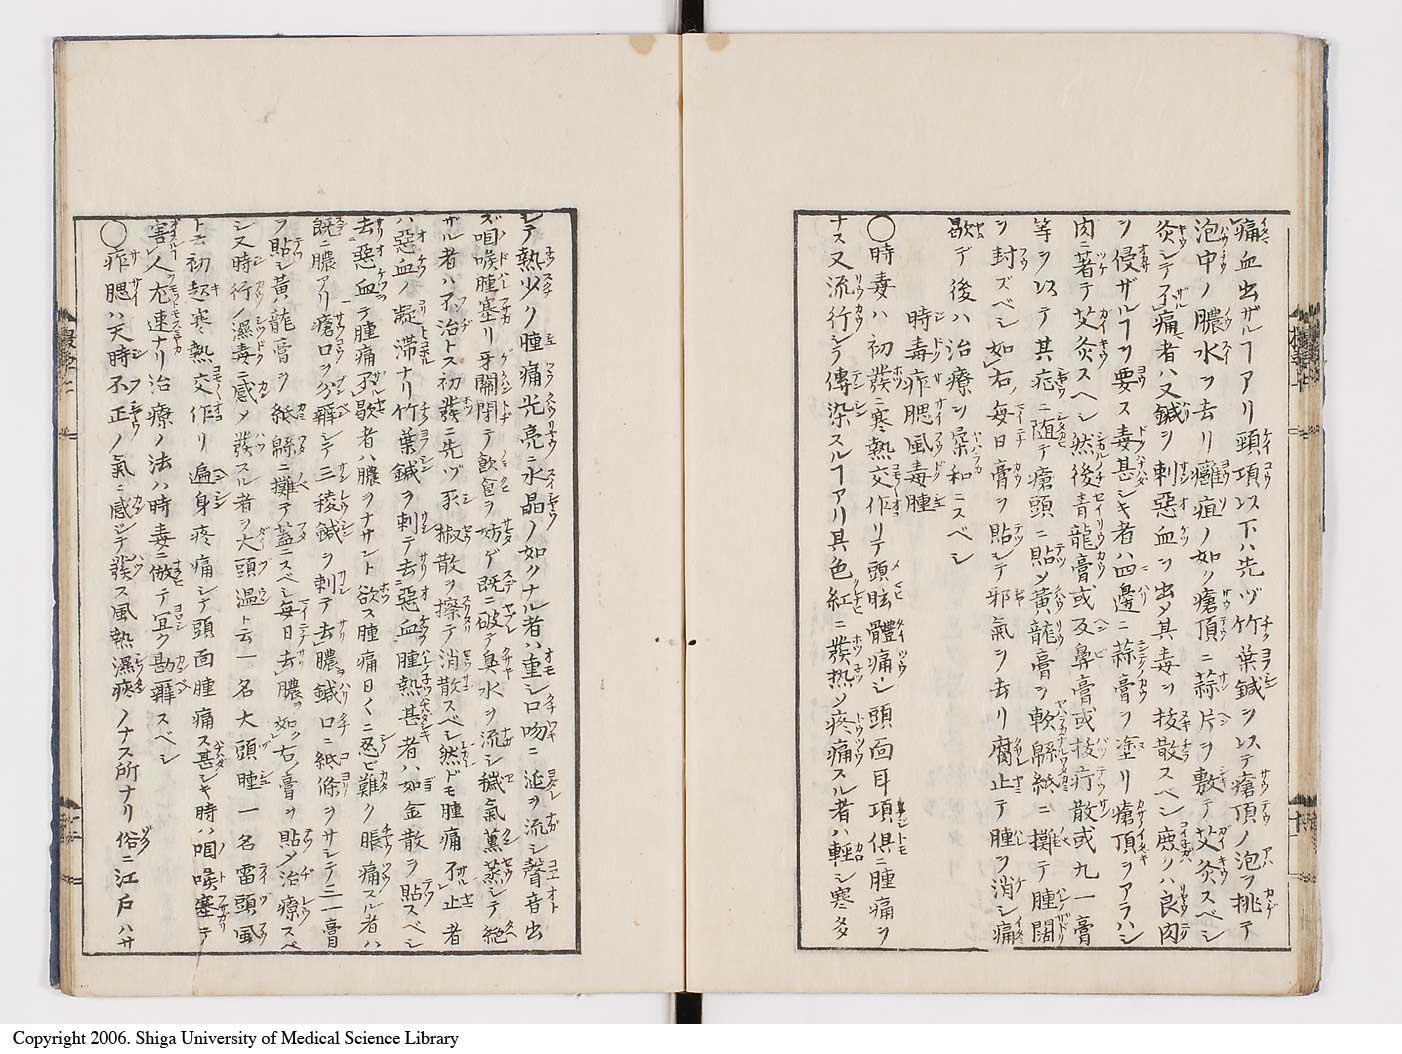 痛血出ザルヿアリ頭項以下ハ先ヅ竹葉鍼ヲ以テ瘡頂ノ泡ヲ挑テ
泡中ノ膿水ヲ去リ癰疽ノ如ク瘡頂ニ蒜片ヲ敷テ艾灸スベシ
灸シテ不痛者ハ又鍼ヲ刺惡血ヲ出メ其毒ヲ抜散スベシ良肉
ヲ侵ザルヿヲ要ス毒甚シキ者ハ四邊ニ蒜膏ヲ塗リ瘡頂ヲアラハシ
肉ニ著テ艾灸スベシ然後青龍膏或及鼻膏或抜疔散或九一膏
等ヲ以テ其症ニ随テ瘡頭ニ貼メ黄龍膏ヲ軟緜紙ニ攤テ腫闊
ヲ封ズベシ如右毎日膏ヲ貼シテ邪氣ヲ去リ腐止テ腫ヲ消シ痛
歇デ後ハ治療ヲ柔和ニスベシ
時毒痄腮風毒腫
〇時毒ハ初發ニ寒熱交作リテ頭眩體痛シ頭面耳項俱ニ腫痛ヲ
ナス又流行シテ傳染スルヿアリ其色紅ニ發熱メ疼痛スル者ハ輕シ寒多
シテ熱少ク腫痛光亮ニ水晶ノ如クナル者ハ重シ口吻ニ涎ヲ流シ聲音出
ズ咽喉腫塞リ牙關閉テ飲食ヲ妨ゲ既ニ破テ臭水ヲ流シ穢氣薫蒸シテ絶
ザル者ハ不治トス初發ニ先ヅ椒散ヲ擦テ消散スベシ然ドモ腫痛不止者
ハ惡血ノ凝滞ナリ竹葉鍼ヲ刺テ去惡血腫熱甚者ハ如金散ヲ貼スベシ
去惡血テ腫痛不歇者ハ膿ヲナサント欲ス腫痛日々ニ忍ビ難ク脹痛スル者ハ
既ニ膿アリ瘡口ヲ分辨シテ三稜鍼ヲ刺テ去膿鍼口ニ紙條ヲサシテ三一膏
ヲ貼シ黄龍膏ヲ紙緜ニ攤テ蓋ニスベシ毎日去膿ヲ如右膏ヲ貼メ治療スベ
シ又時行ノ濕毒ニ感メ發スル者ヲ大頭温ト云一名大頭腫一名雷頭風
ト云初起寒熱交作リ遍身疼痛シテ頭面腫痛ス甚シキ時ハ咽喉塞テ
害人尤速ナリ治療ノ法ハ時毒ニ倣テ宜ク勘辨スベシ
〇痄腮ハ天時不正ノ氣ニ感ジテ發ス風熱濕痰ノナス所ナリ俗ニ江戸ハサ
Copyright 2006. Shiga University of Medical Science Library